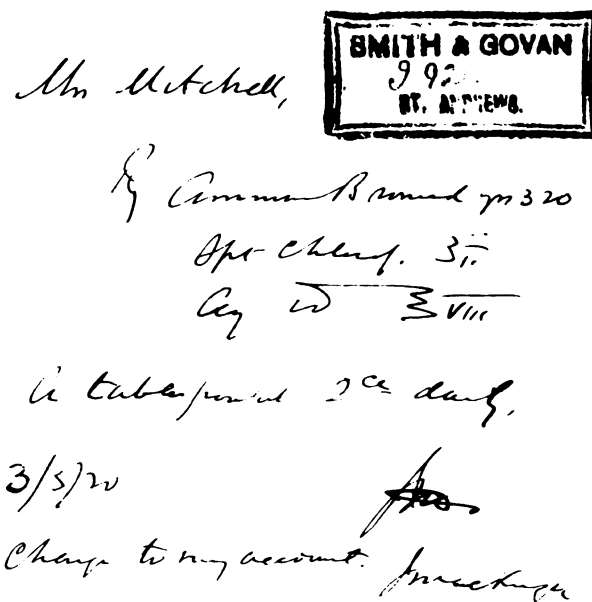 SMITH & GOVAN
ST. ANDREWS.
Mr Mitchell,
℞ Ammon Bromid grs 320
Spt Chlorof. ʒii
Aq ad ℥VIII
A tablespoonful daily.
3/5/20
Charge to my account.